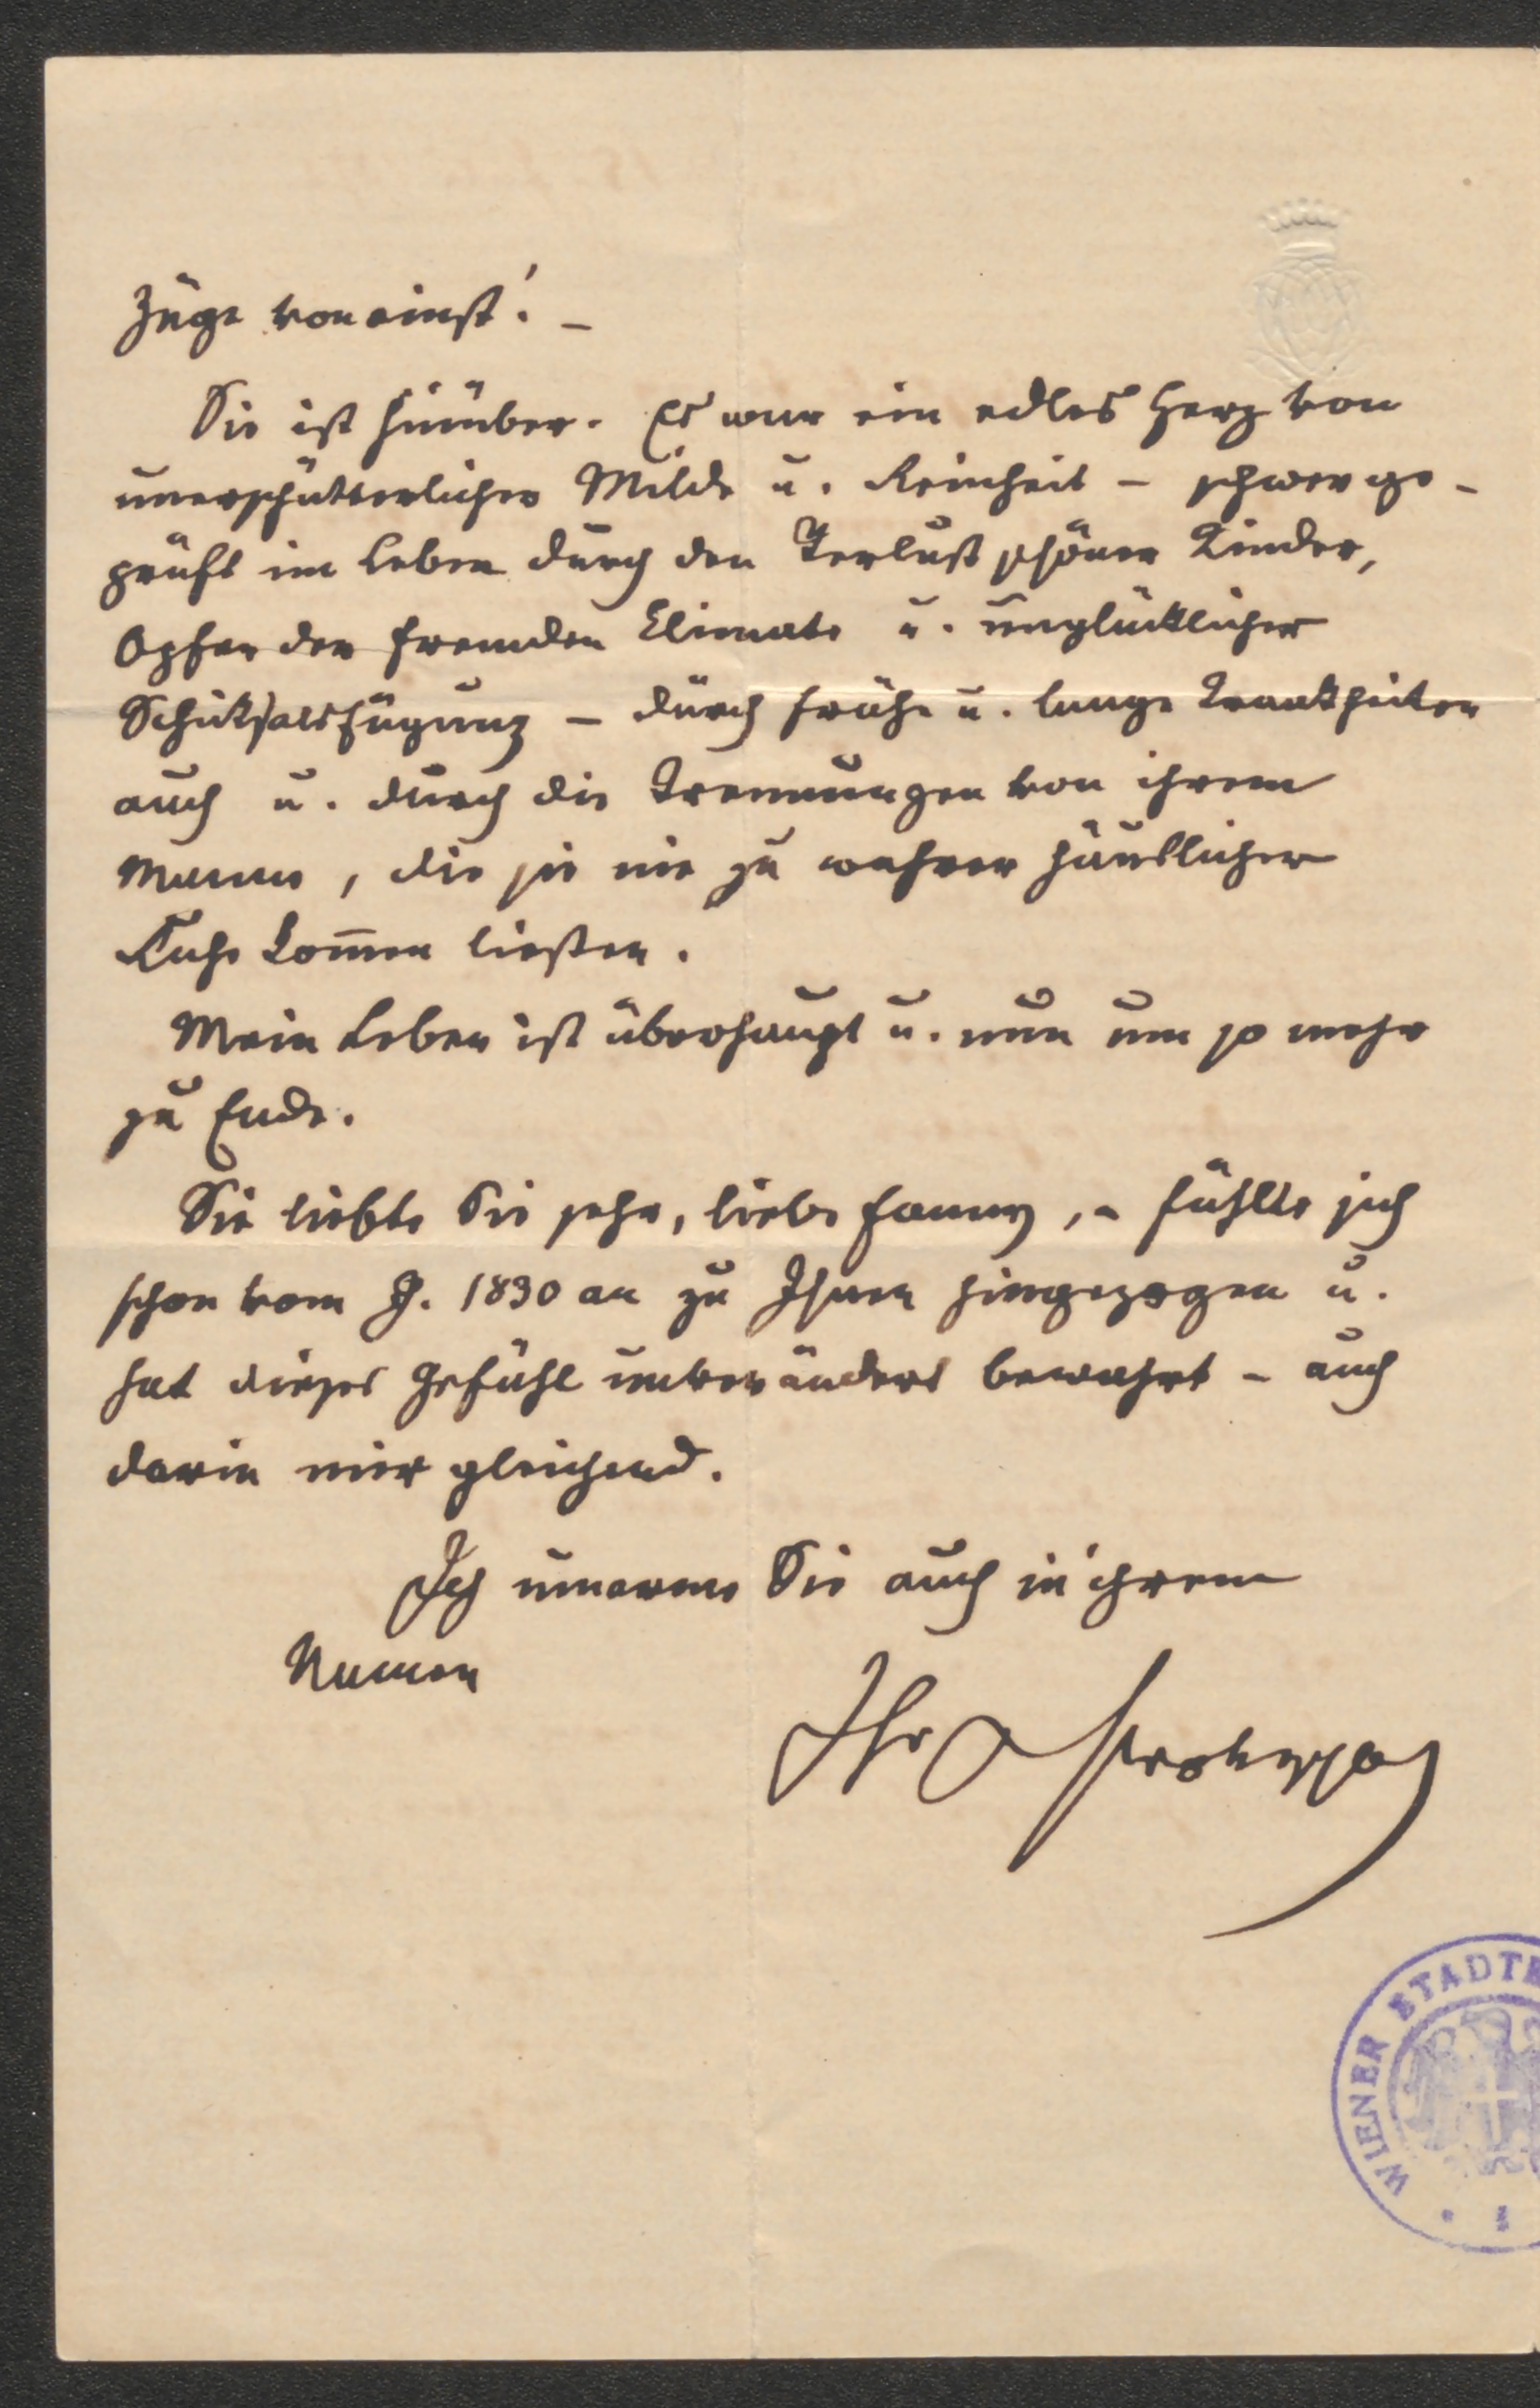 Züge von einst! –
Sie ist hinüber. Es war ein edles Herz von
unerschütterlicher Milde u. Reinheit – schwer ge-
prüft im Leben durch den Verlust schöner Kinder,
Opfer der fremden Climate u. unglücklicher
Schiksalsfügung – durch frühe u. lange Krankheiten
auch u. durch die Trennungen von ihrem
Manne, die sie nie zu wahrer häuslicher
Ruhe kom̅en ließen.
Mein Leben ist überhaupt u. nun um so mehr
zu Ende.
Sie liebte Sie sehr, liebe Fanny, – fühlte sich
schon vom J. 1830 an zu Ihnen hingezogen u.
hat dieses Gefühl unverändert bewahrt – auch
darin mir gleichend.
Ich umarme Sie auch in ihrem
Namen
Ihr Prokesch
WIENER STADT